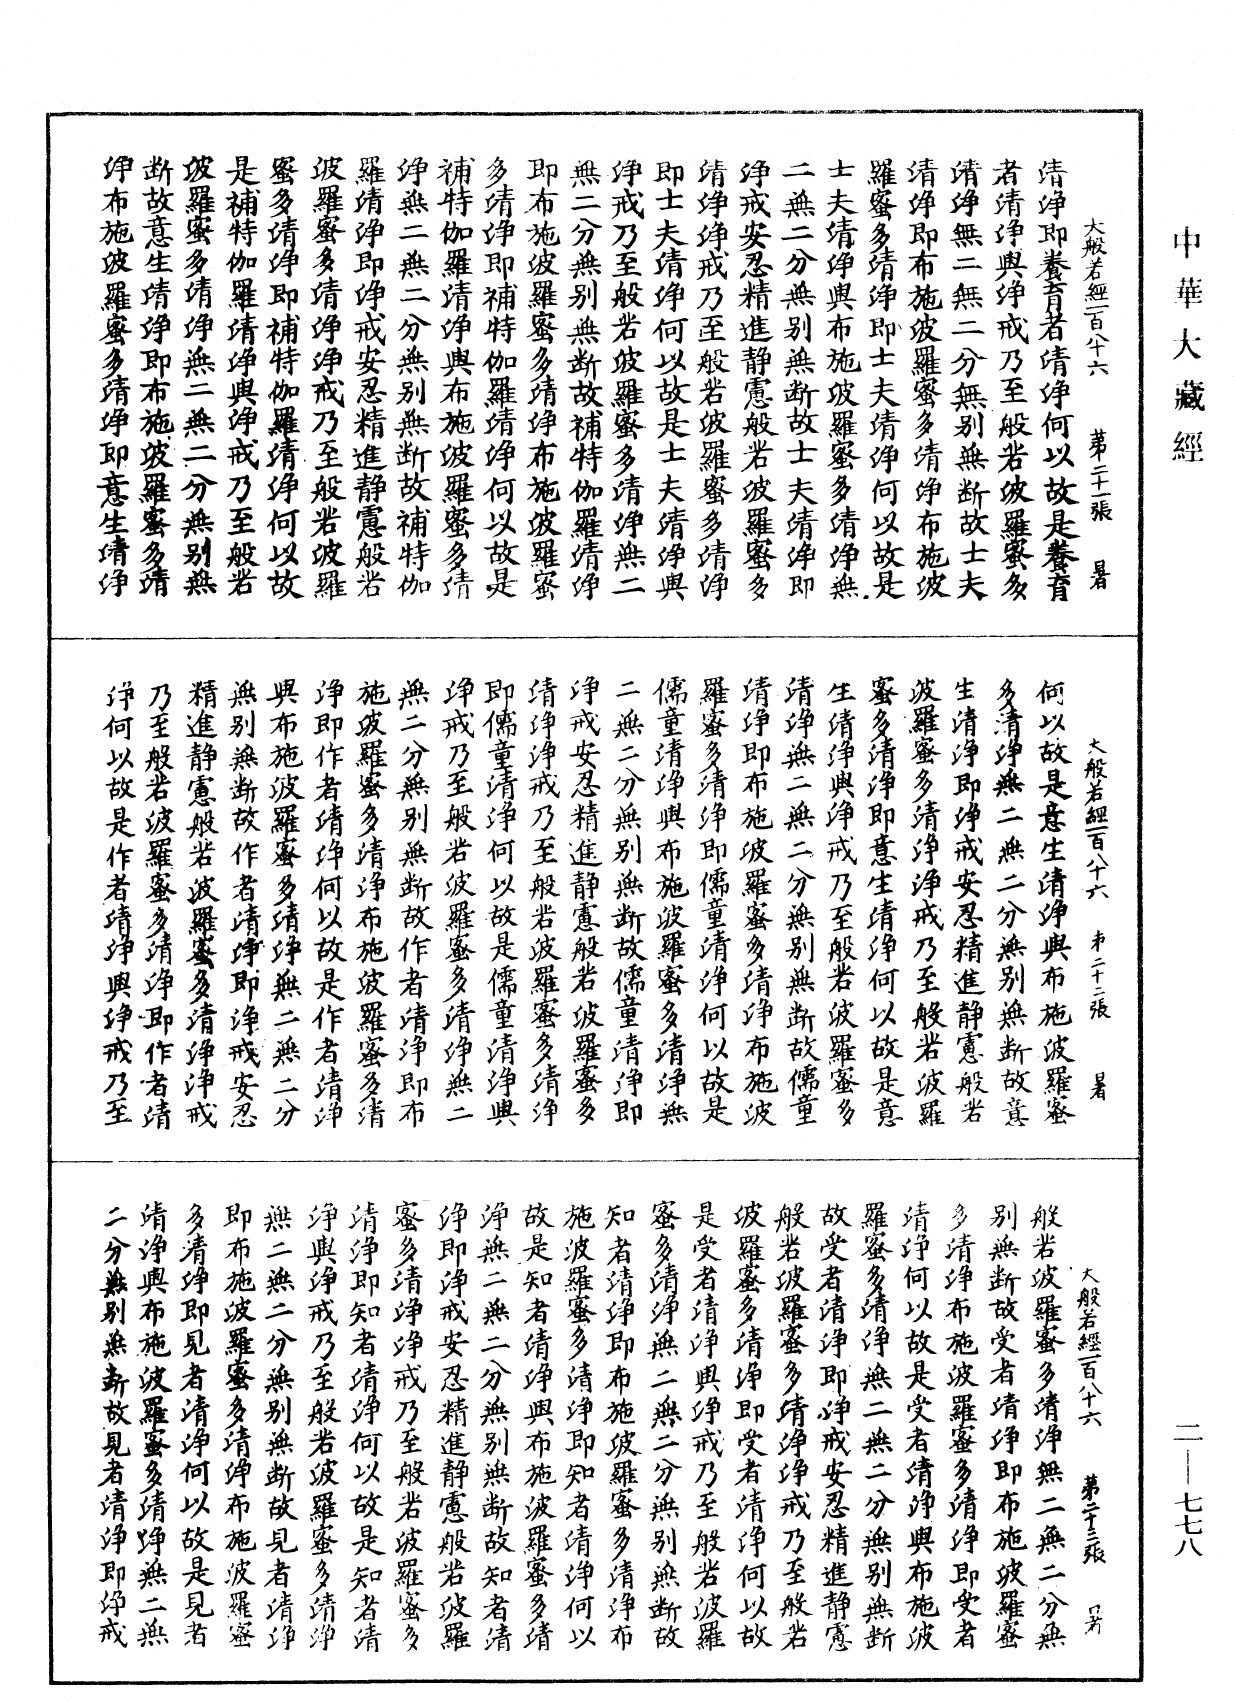 中華大藏經
大般若經一百八十六 第二十一張 暑
清淨即養育者清淨何以故是養育
者清淨與淨戒乃至般若波羅蜜多
清淨無二無二分無別無斷故士夫
清淨即布施波羅蜜多清淨布施波
羅蜜多清淨即士夫清淨何以故是
士夫清淨與布施波羅蜜多清淨無
二無二分無別無斷故士夫清淨即
淨戒安忍精進靜慮般若波羅蜜多
清淨淨戒乃至般若波羅蜜多清淨
即士夫清淨何以故是士夫清淨與
淨戒乃至般若波羅蜜多清淨無二
無二分無別無斷故補特伽羅清淨
即布施波羅蜜多清淨布施波羅蜜
多清淨即補特伽羅清淨何以故是
補特伽羅清淨與布施波羅蜜多清
淨無二無二分無別無斷故補特伽
羅清淨即淨戒安忍精進靜慮般若
波羅蜜多清淨淨戒乃至般若波羅
蜜多清淨即補特伽羅清淨何以故
是補特伽羅清淨與淨戒乃至般若
波羅蜜多清淨無二無二分無別無
斷故意生清淨即布施波羅蜜多清
淨布施波羅蜜多清淨即意生清淨
大般若經一百八十六 第二十二張 暑
何以故是意生清淨與布施波羅蜜
多清淨無二無二分無別無斷故意
生清淨即淨戒安忍精進靜慮般若
波羅蜜多清淨淨戒乃至般若波羅
蜜多清淨即意生清淨何以故是意
生清淨與淨戒乃至般若波羅蜜多
清淨無二無二分無別無斷故儒童
清淨即布施波羅蜜多清淨布施波
羅蜜多清淨即儒童清淨何以故是
儒童清淨與布施波羅蜜多清淨無
二無二分無別無斷故儒童清淨即
淨戒安忍精進靜慮般若波羅蜜多
清淨淨戒乃至般若波羅蜜多清淨
即儒童清淨何以故是儒童清淨與
淨戒乃至般若波羅蜜多清淨無二
無二分無別無斷故作者清淨即布
施波羅蜜多清淨布施波羅蜜多清
淨即作者清淨何以故是作者清淨
與布施波羅蜜多清淨無二無二分
無別無斷故作者清淨即淨戒安忍
精進靜慮般若波羅蜜多清淨淨戒
乃至般若波羅蜜多清淨即作者清
淨何以故是作者清淨與淨戒乃至
大般若經一百八十六 第二十三張 暑
般若波羅蜜多清淨無二無二分無
別無斷故受者清淨即布施波羅蜜
多清淨布施波羅蜜多清淨即受者
清淨何以故是受者清淨與布施波
羅蜜多清淨無二無二分無別無斷
故受者清淨即淨戒安忍精進靜慮
般若波羅蜜多清淨淨戒乃至般若
波羅蜜多清淨即受者清淨何以故
是受者清淨與淨戒乃至般若波羅
蜜多清淨無二無二分無別無斷故
知者清淨即布施波羅蜜多清淨布
施波羅蜜多清淨即知者清淨何以
故是知者清淨與布施波羅蜜多清
淨無二無二分無別無斷故知者清
淨即淨戒安忍精進靜慮般若波羅
蜜多清淨淨戒乃至般若波羅蜜多
清淨即知者清淨何以故是知者清
淨與淨戒乃至般若波羅蜜多清淨
無二無二分無別無斷故見者清淨
即布施波羅蜜多清淨布施波羅蜜
多清淨即見者清淨何以故是見者
清淨與布施波羅蜜多清淨無二無
二分無別無斷故見者清淨即淨戒
二—七七八